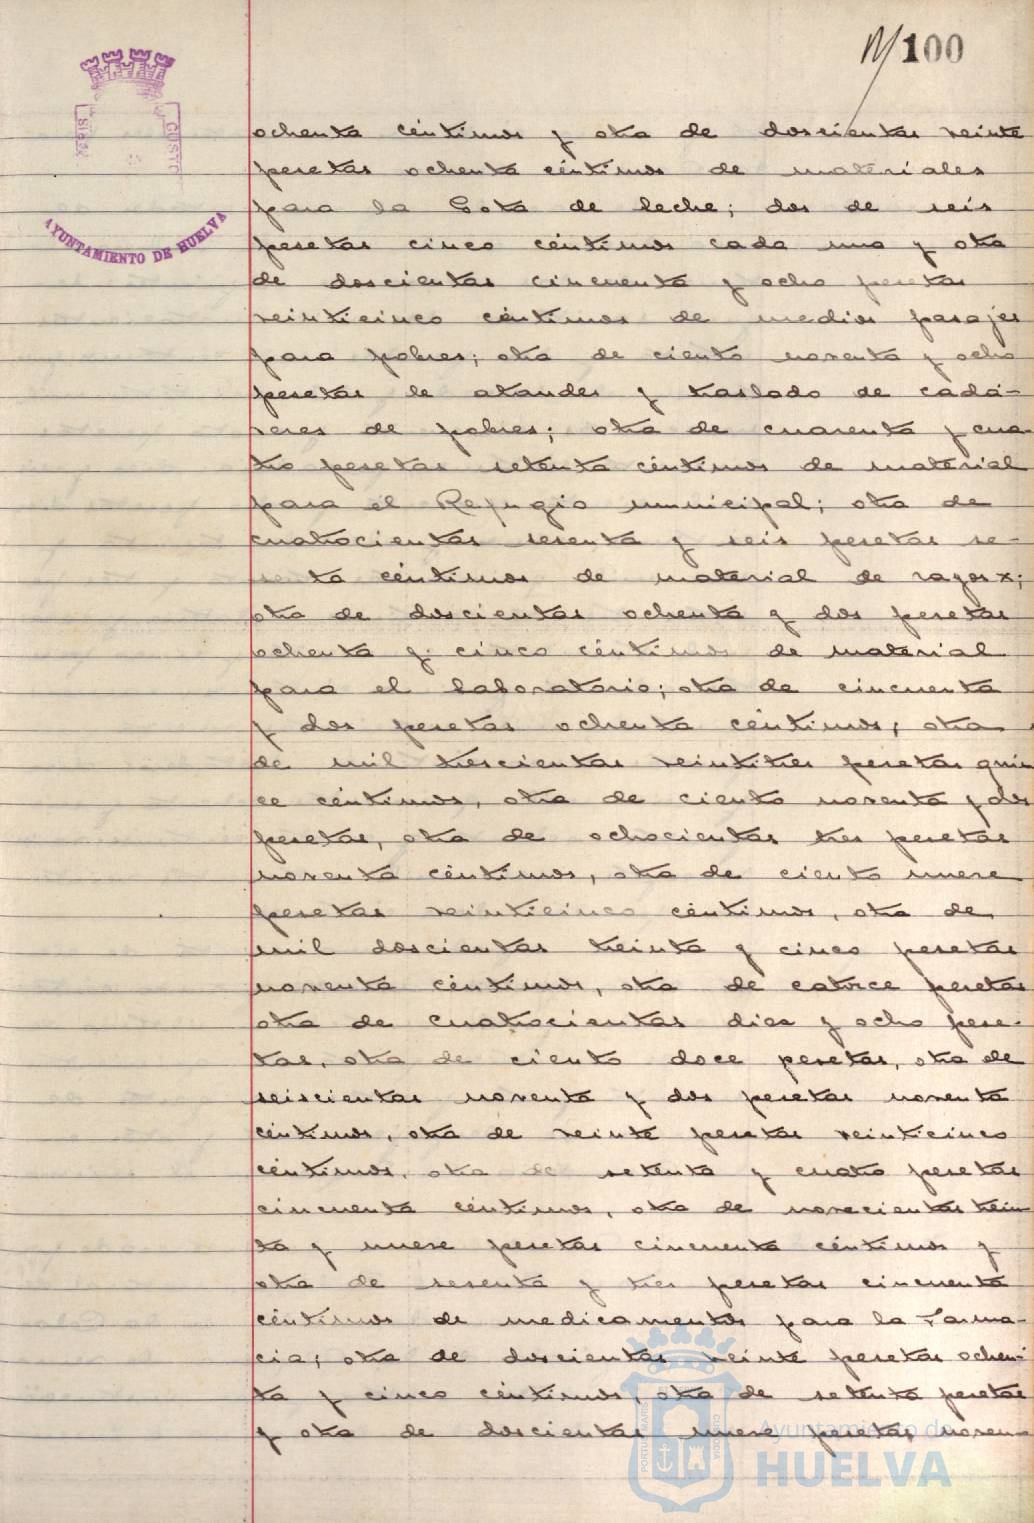 100
AYUNTAMIENTO DE HUELVA
ochenta céntimos y otra de doscientas veinte
pesetas ochenta céntimos de materiales
para la Gota de leche; dos de seis
pesetas cinco céntimos cada una y otra
de doscientas cincuenta y ocho pesetas
veinticinco céntimos de medios pasajes
para pobres; otra de ciento noventa y ocho
pesetas de ataudes y traslado de cadá-
veres de pobres; otra de cuarenta y cua
tro pesetas setenta céntimos de material
para el Refugio municipal; otra de
cuatrocientas sesenta y seis pesetas se-
ta céntimos de material de rayos x;
otra de doscientas ochenta y dos pesetas
ochenta y cinco céntimos de material
para el laboratorio; otra de cincuenta
y dos pesetas ochenta céntimos, otra
de mil trescientas veintitres pesetas quin
ce céntimos, otra de ciento noventa y dos
pesetas, otra de ochocientas tres pesetas
noventa céntimos, otra de ciento nueve
pesetas veinticinco céntimos, otra de
mil doscientas treinta y cinco pesetas
noventa céntimos, otra de catorce pesetas
otra de cuatrocientas diez y ocho pese-
tas, otra de ciento doce pesetas, otra de
seiscientas noventa y dos pesetas noventa
céntimos, otra de veinte pesetas veinticinco
céntimos, otra de setenta y cuatro pesetas
cincuenta céntimos, otra de novecientas trein
ta y nueve pesetas cincuenta céntimos y
otra de sesenta y tres pesetas cincuenta
céntimos de medicamentos para la Farma-
cia; otra de doscientas veinte pesetas ochen-
ta y cinco céntimos, otra de setenta pesetas
y otra de doscientas nueve pesetas noven-
Ayuntamiento de
HUELVA